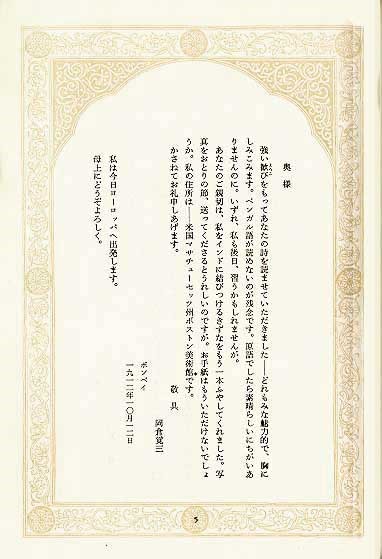 奥様
強い歓びをもってあなたの詩を読ませていただきました――どれもみな魅力的で、胸に
しみこみます。ベンガル語が読めないのが残念です。原語でしたら素晴らしいにちがいあ
りませんのに。いずれ、私も後日、習うかもしれませんが。
あなたのご親切は、私をインドに結びつけるきずなをもう一本ふやしてくれました。写
真をおとりの節、送ってくださるとうれしいのですが。お手紙はもういただけないでしょ
うか。私の住所は――米国マサチューセッツ州ボストン美術館です。
かさねてお礼申しあげます。
敬具
岡倉覚三
ボンベイ
一九一二年一〇月一二日
私は今日ヨーロッパへ出発します。
母上にどうぞよろしく。
5